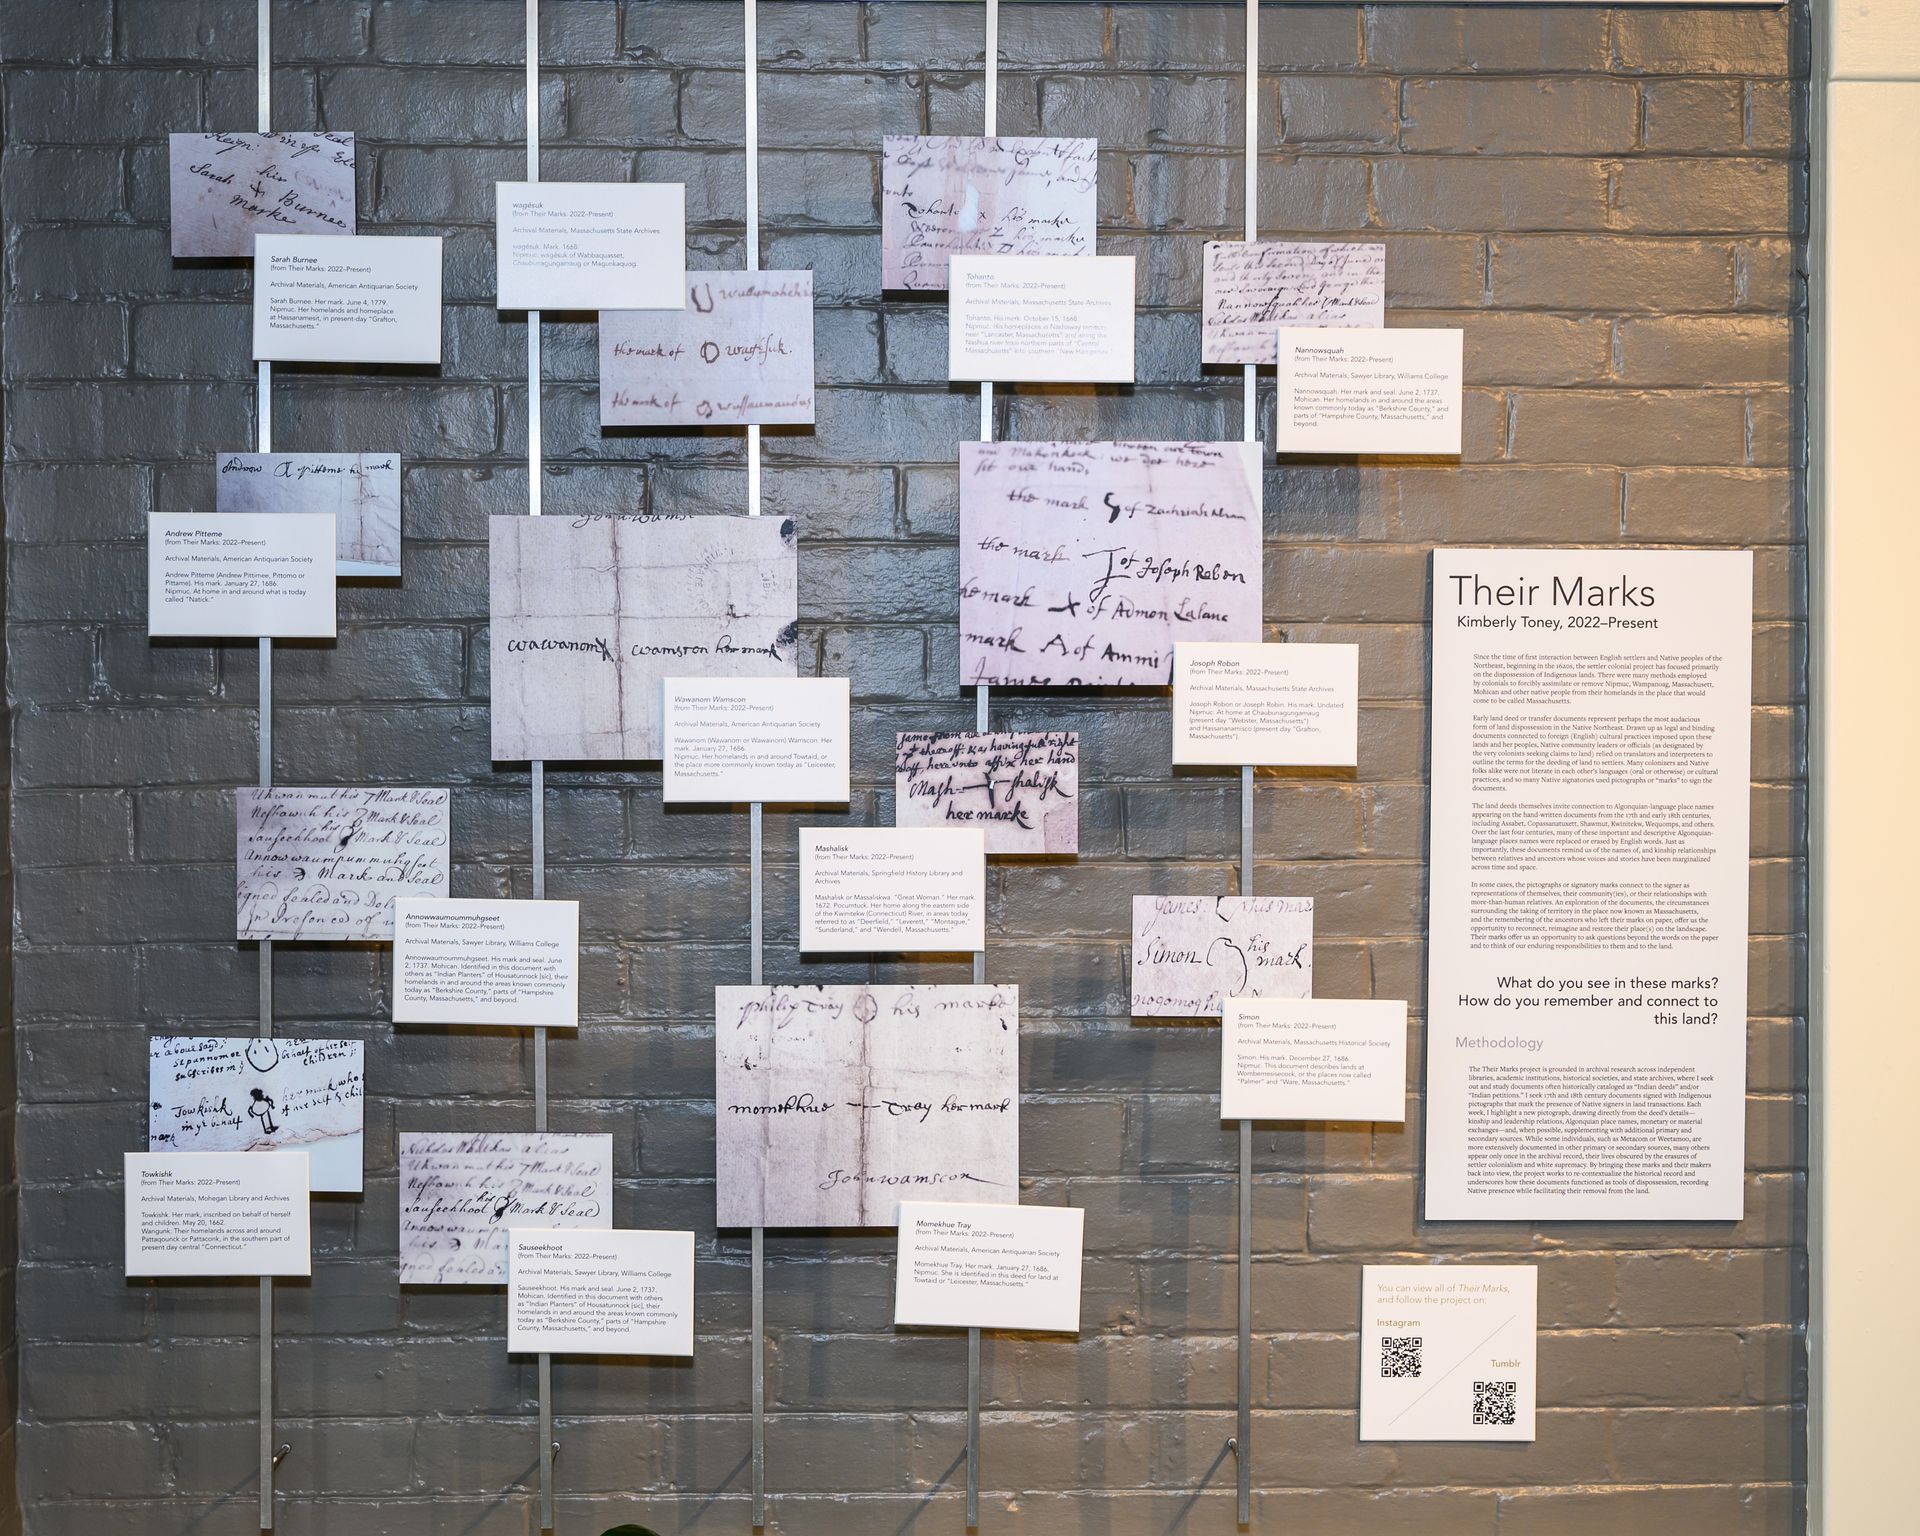 Sarah Burnee
(from Their Marks: 2022–Present)
Archival Materials, American Antiquarian Society
Sarah Burnee. Her mark. June 4, 1779.
Nipmuc. Her homelands and homeplace
at Hassanamesit, in present-day "Grafton,
Massachusetts."
Sarah
her
Burnee
Marke
wagésuk
(from Their Marks: 2022–Present)
Archival Materials, Massachusetts State Archives
wagésuk. Mark. 1668.
Nipmuc. wagésuk of Wabbaquasset,
Chaubunagungamaug or Magunkaquog.
the mark of
the mark of
Tohanto
(from Their Marks: 2022–Present)
Archival Materials, Massachusetts State Archives
Tohanto. His mark. October 15, 1668.
Nipmuc. His homeplaces in Nashaway territory,
near "Lancaster, Massachusetts" and along the
Nashua river from northern parts of "Central
Massachusetts" into southern "New Hampshire."
Tohanto x his marke
Nannowsquah
(from Their Marks: 2022–Present)
Archival Materials, Sawyer Library, Williams College
Nannowsquah. Her mark and seal. June 2, 1737.
Mohican. Her homelands in and around the areas
known commonly today as "Berkshire County," and
parts of "Hampshire County, Massachusetts," and
beyond.
Nannowsquah her Mark & Seal
Andrew Pitteme his mark
Andrew Pitteme
(from Their Marks: 2022–Present)
Archival Materials, American Antiquarian Society
Andrew Pitteme (Andrew Pittimee, Pittomo or
Pittame). His mark. January 27, 1686.
Nipmuc. At home in and around what is today
called "Natick."
wawanom wamscon her mark
Wawanom Wamscon
(from Their Marks: 2022–Present)
Archival Materials, American Antiquarian Society
Wawanom (Wawanom or Wawainom) Wamscon. Her
mark. January 27, 1686.
Nipmuc. Her homelands in and around Towtaid, or
the place more commonly known today as "Leicester,
Massachusetts."
set our hands
the mark of Zachriah
the mark of Joseph Robon
mark of
mark of Ammi
Josoph Robon
(from Their Marks: 2022–Present)
Archival Materials, Massachusetts State Archives
Josoph Robon or Joseph Robin. His mark. Undated
Nipmuc. At home at Chaubunagungamaug
(present day "Webster, Massachusetts")
and Hassananamisco (present day "Grafton,
Massachusetts").
Mash shalisk
her marke
Mashalisk
(from Their Marks: 2022–Present)
Archival Materials, Springfield History Library and
Archives
Mashalisk or Massaliskwa. "Great Woman." Her mark.
1672. Pocumtuck. Her home along the eastern side
of the Kwinitekw (Connecticut) River, in areas today
referred to as "Deerfield," "Leverett," "Montague,"
"Sunderland," and "Wendell, Massachusetts."
Ukwanmuthis Mark & Seal
his Mark & Seal
his
Sauseekhoot Mark & Seal
Annowwaumpummuhgseet
his Mark and Seal
Annowwaumoummuhgseet
(from Their Marks: 2022–Present)
Archival Materials, Sawyer Library, Williams College
Annowwaumoummuhgseet. His mark and seal. June
2, 1737. Mohican. Identified in this document with
others as "Indian Planters" of Housatunnock [sic], their
homelands in and around the areas known commonly
today as "Berkshire County," parts of "Hampshire
County, Massachusetts," and beyond.
James his mar
Simon his
mark.
Simon
(from Their Marks: 2022–Present)
Archival Materials, Massachusetts Historical Society
Simon. His mark. December 27, 1686.
Nipmuc. This document describes lands at
Wombemesisecock, or the places now called
"Palmer" and "Ware, Massachusetts."
philip Tray his marke
momekhue Tray her mark
John wamscon
Momekhue Tray
(from Their Marks: 2022–Present)
Archival Materials, American Antiquarian Society
Momekhue Tray. Her mark. January 27, 1686.
Nipmuc. She is identified in this deed for land at
Towtaid or "Leicester, Massachusetts."
Towkishk her mark who
Towkishk
(from Their Marks: 2022–Present)
Archival Materials, Mohegan Library and Archives
Towkishk. Her mark, inscribed on behalf of herself
and children. May 20, 1662.
Wangunk. Their homelands across and around
Pattaqounck or Pattaconk, in the southern part of
present day central "Connecticut."
Mark & Seal
his Mark & Seal
his
Sauseekhoot Mark & Seal
Sauseekhoot
(from Their Marks: 2022–Present)
Archival Materials, Sawyer Library, Williams College
Sauseekhoot. His mark and seal. June 2, 1737.
Mohican. Identified in this document with others
as "Indian Planters" of Housatunnock [sic], their
homelands in and around the areas known commonly
today as "Berkshire County," parts of "Hampshire
County, Massachusetts," and beyond.
Their Marks
Kimberly Toney, 2022–Present
Since the time of first interaction between English settlers and Native peoples of the
Northeast, beginning in the 1620s, the settler colonial project has focused primarily
on the dispossession of Indigenous lands. There were many methods employed
by colonials to forcibly assimilate or remove Nipmuc, Wampanoag, Massachusett,
Mohican and other native people from their homelands in the place that would
come to be called Massachusetts.
Early land deed or transfer documents represent perhaps the most audacious
form of land dispossession in the Native Northeast. Drawn up as legal and binding
documents connected to foreign (English) cultural practices imposed upon these
lands and her peoples, Native community leaders or officials (as designated by
the very colonists seeking claims to land) relied on translators and interpreters to
outline the terms for the deeding of land to settlers. Many colonizers and Native
folks alike were not literate in each other's languages (oral or otherwise) or cultural
practices, and so many Native signatories used pictographs or "marks" to sign the
documents.
The land deeds themselves invite connection to Algonquian-language place names
appearing on the hand-written documents from the 17th and early 18th centuries,
including Assabet, Copassanatuxett, Shawmut, Kwinitekw, Wequomps, and others.
Over the last four centuries, many of these important and descriptive Algonquian-
language places names were replaced or erased by English words. Just as
importantly, these documents remind us of the names of, and kinship relationships
between relatives and ancestors whose voices and stories have been marginalized
across time and space.
In some cases, the pictographs or signatory marks connect to the signer as
representations of themselves, their community(ies), or their relationships with
more-than-human relatives. An exploration of the documents, the circumstances
surrounding the taking of territory in the place now known as Massachusetts,
and the remembering of the ancestors who left their marks on paper, offer us the
opportunity to reconnect, reimagine and restore their place(s) on the landscape.
Their marks offer us an opportunity to ask questions beyond the words on the paper
and to think of our enduring responsibilities to them and to the land.
What do you see in these marks?
How do you remember and connect to
this land?
Methodology
The Their Marks project is grounded in archival research across independent
libraries, academic institutions, historical societies, and state archives, where I seek
out and study documents often historically cataloged as "Indian deeds" and/or
"Indian petitions." I seek 17th and 18th century documents signed with Indigenous
pictographs that mark the presence of Native signers in land transactions. Each
week, I highlight a new pictograph, drawing directly from the deed's details—
kinship and leadership relations, Algonquian place names, monetary or material
exchanges—and, when possible, supplementing with additional primary and
secondary sources. While some individuals, such as Metacom or Weetamoo, are
more extensively documented in other primary or secondary sources, many others
appear only once in the archival record, their lives obscured by the erasures of
settler colonialism and white supremacy. By bringing these marks and their makers
back into view, the project works to re-contextualize the historical record and
underscores how these documents functioned as tools of dispossession, recording
Native presence while facilitating their removal from the land.
You can view all of Their Marks,
and follow the project on:
Instagram
Tumblr